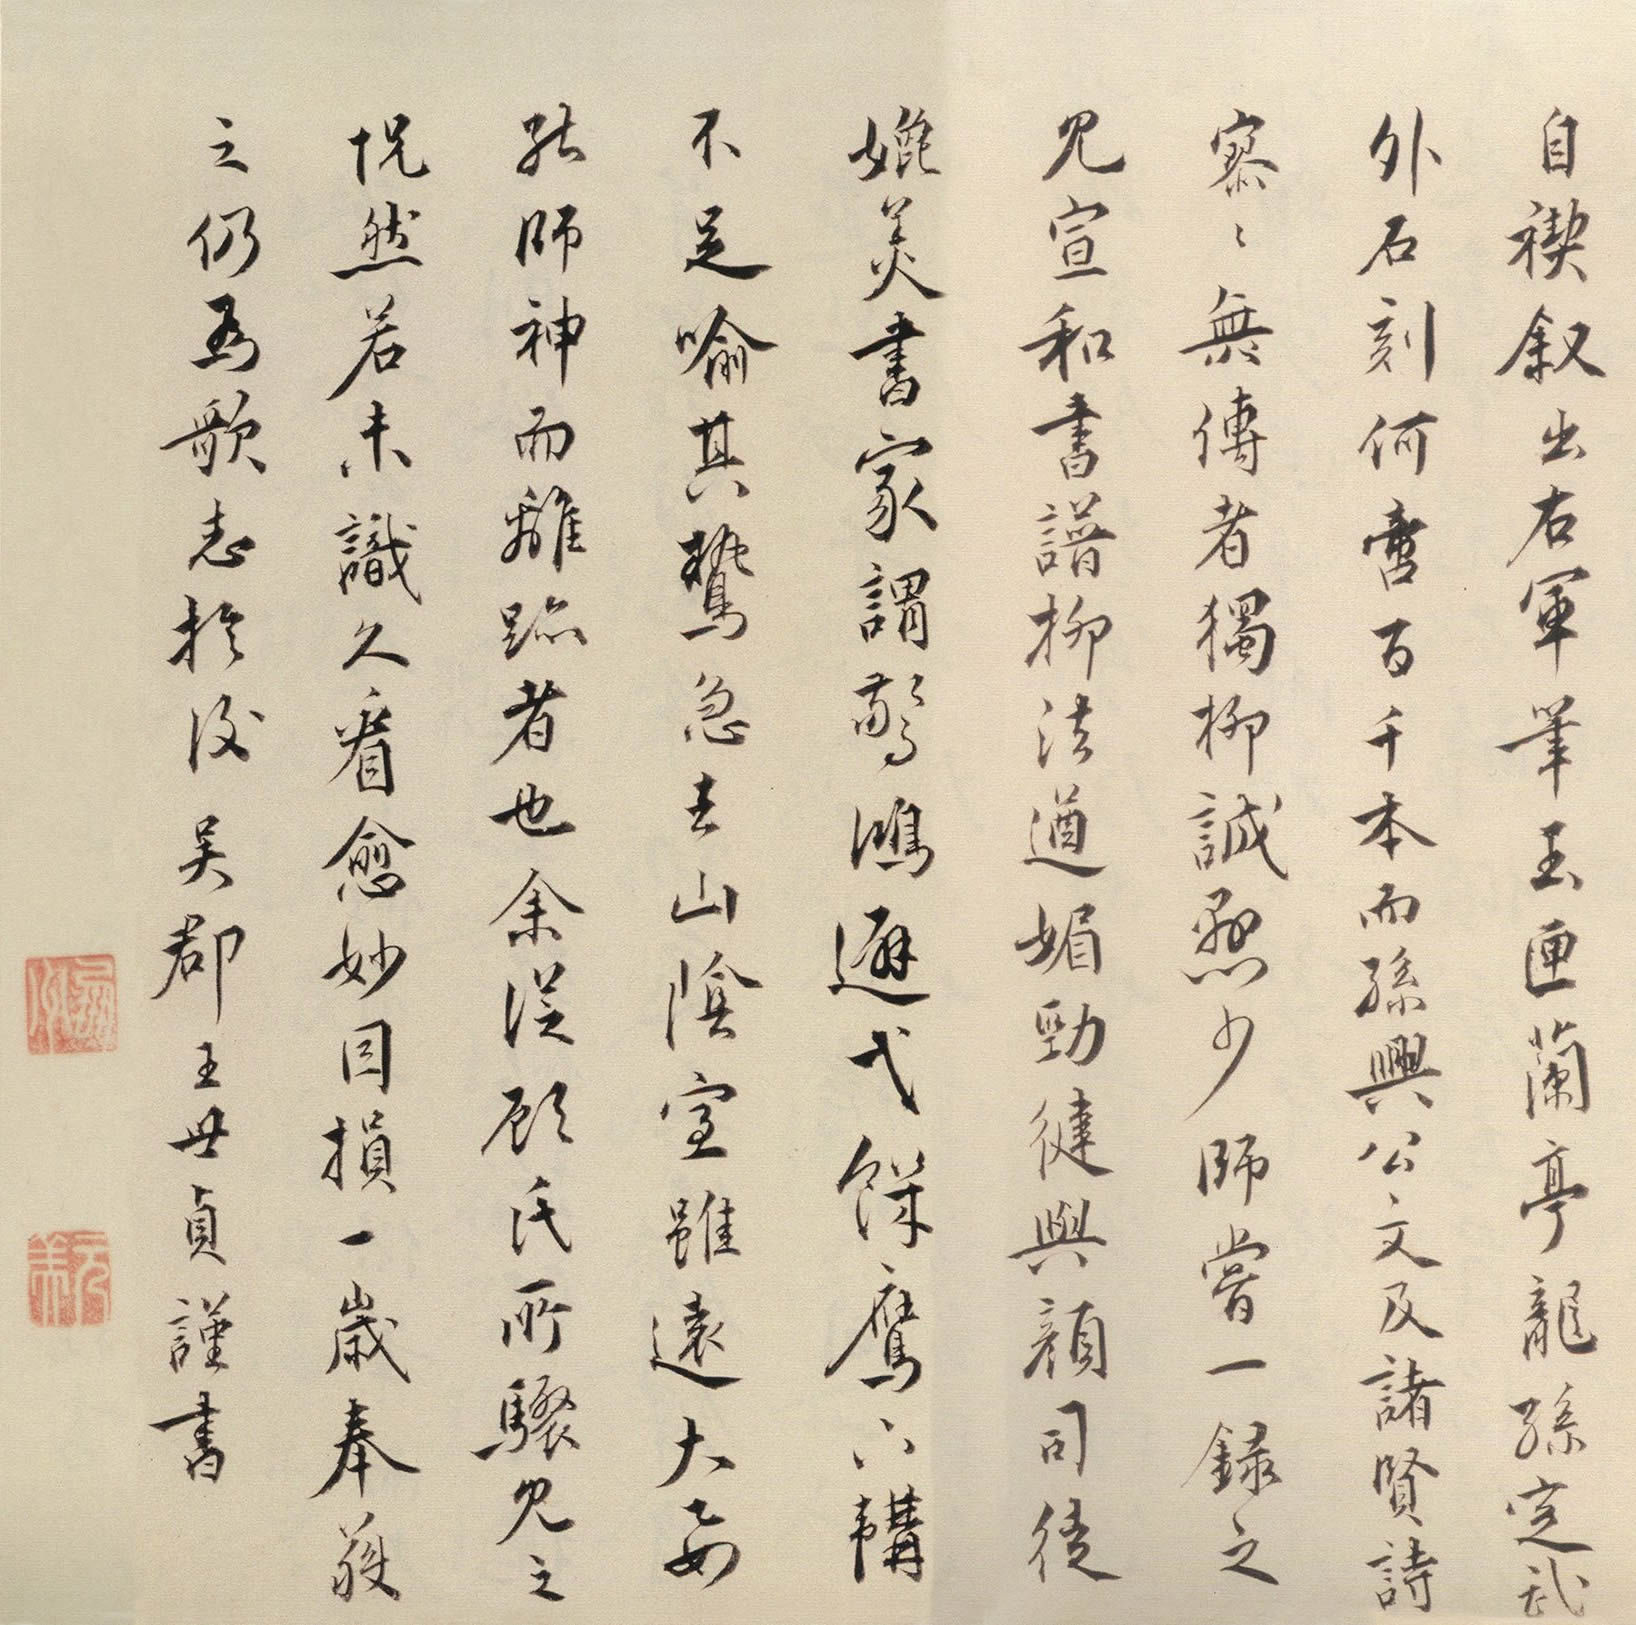 自禊叙出右軍筆玉匣蘭亭龍孫定武
外石刻何啻百千本而孫興公文及諸賢詩
寥〻無傳者獨柳誠懸少師嘗一録之
見宣和書譜柳法遒媚勁健與顔司徒
媲美書家謂驚鴻避弋餓鷹下韝
不足喻其鷙急去山陰室雖遠大要
能師神而離跡者也余從顧氏所驟見之
怳然若未識久看愈妙因損一歲奉獲
之仍爲歌志於後吳郡王世貞謹書
元美